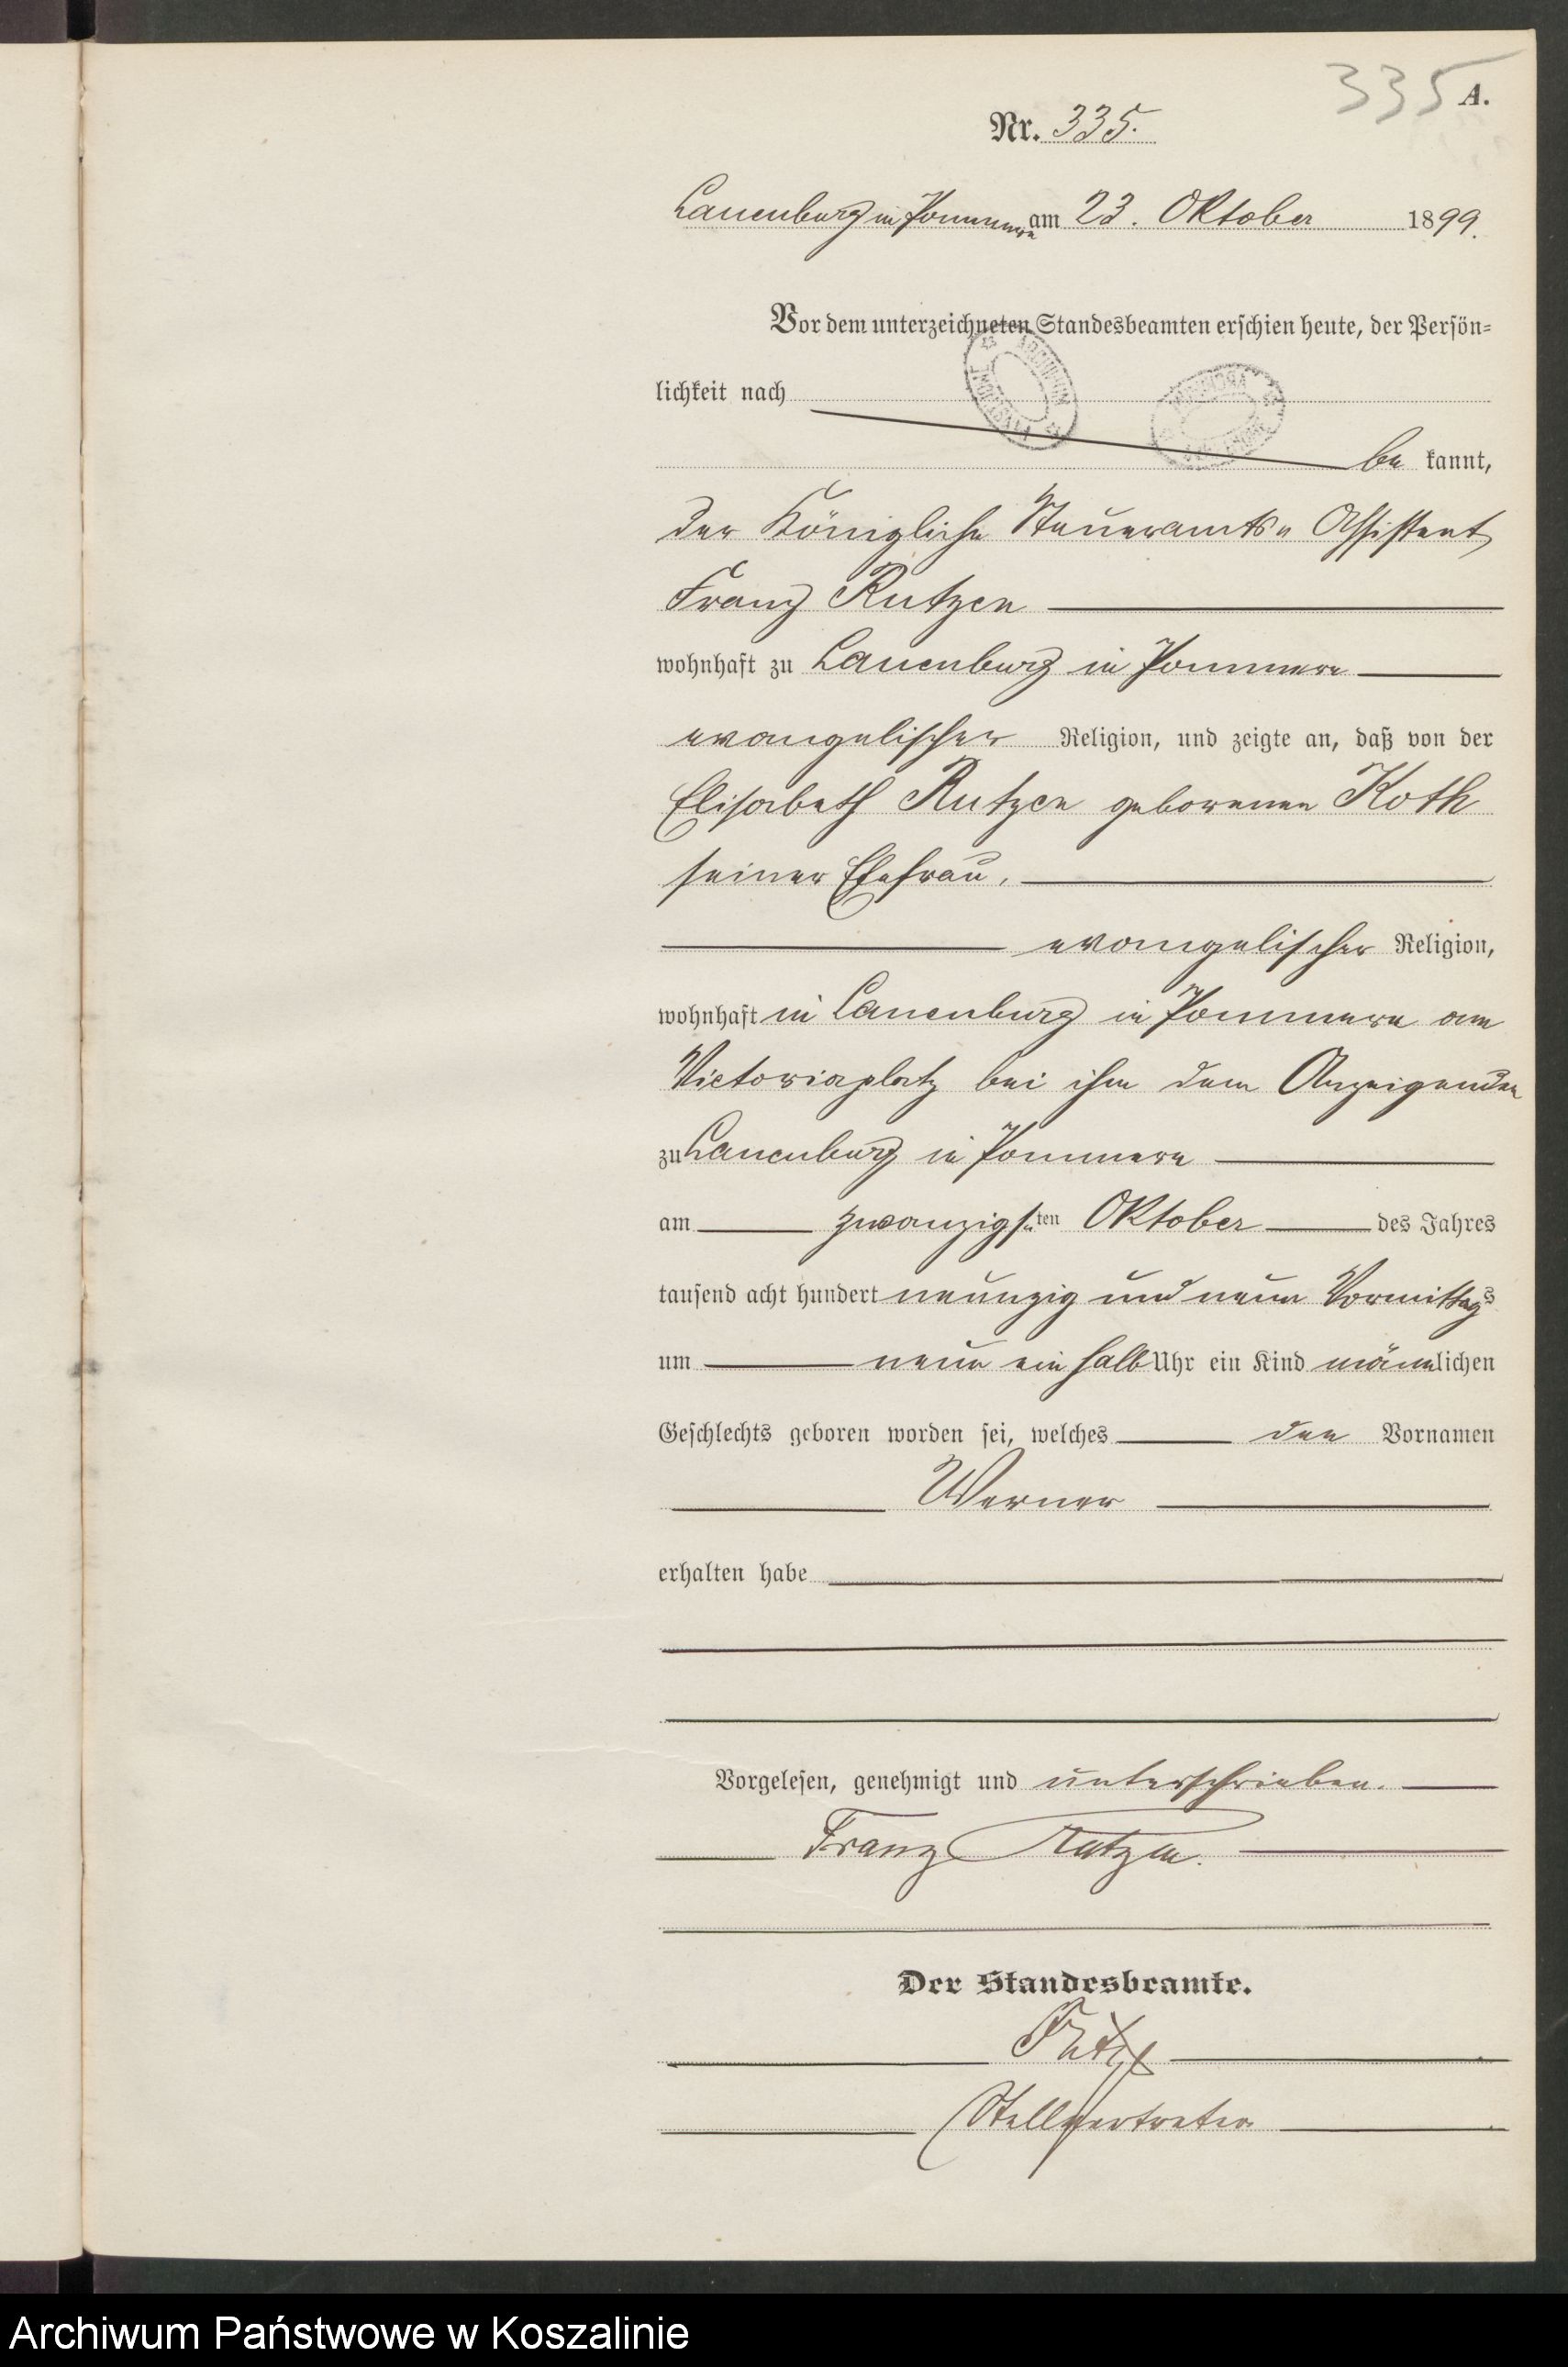 335 A.
Nr. 335.
Lauenburg in Pommern am 23. Oktober 1899.
Vor dem unterzeichneten Standesbeamten erschien heute, der Persön-
lichkeit nach
be kannt,
der Königliche Steueramts- Assistent
Franz Rutzen
wohnhaft zu Lauenburg in Pommern
evangelischer Religion, und zeigte an, daß von der
Elisabeth Rutzen geborenen Koth
seiner Ehefrau,
evangelischer Religion,
wohnhaft in Lauenburg in Pommern am
Victoriaplatz bei ihm dem Anzeigenden
zu Lauenburg in Pommern
am zwanzigsten Oktober des Jahres
tausend acht hundert neunzig und neun Vormittags
um neun ein halb Uhr ein Kind männlichen
Geschlechts geboren worden sei, welches den Vornamen
Werner
erhalten habe
Vorgelesen, genehmigt und unterschrieben.
Franz Rutzen.
Der Standesbeamte.
Stellvertreter
Archiwum Państwowe w Koszalinie